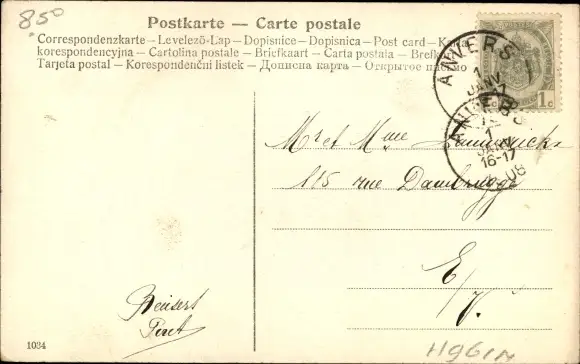 850
Postkarte — Carte postale
Correspondenzkarte — Levelező-Lap — Dopisnice — Dopisnica — Post card — Karta
korespondencyjna — Cartolina postale — Briefkaart — Carta postala — Brefkort
Tarjeta postal — Korespondenční listek — Дописна карта — Открытое письмо
ANVERS
1
JANV
1c
ANVERS
1
JANV
16-17
08
Mr et Mme
115 rue Dambrugge
E/V.
1034